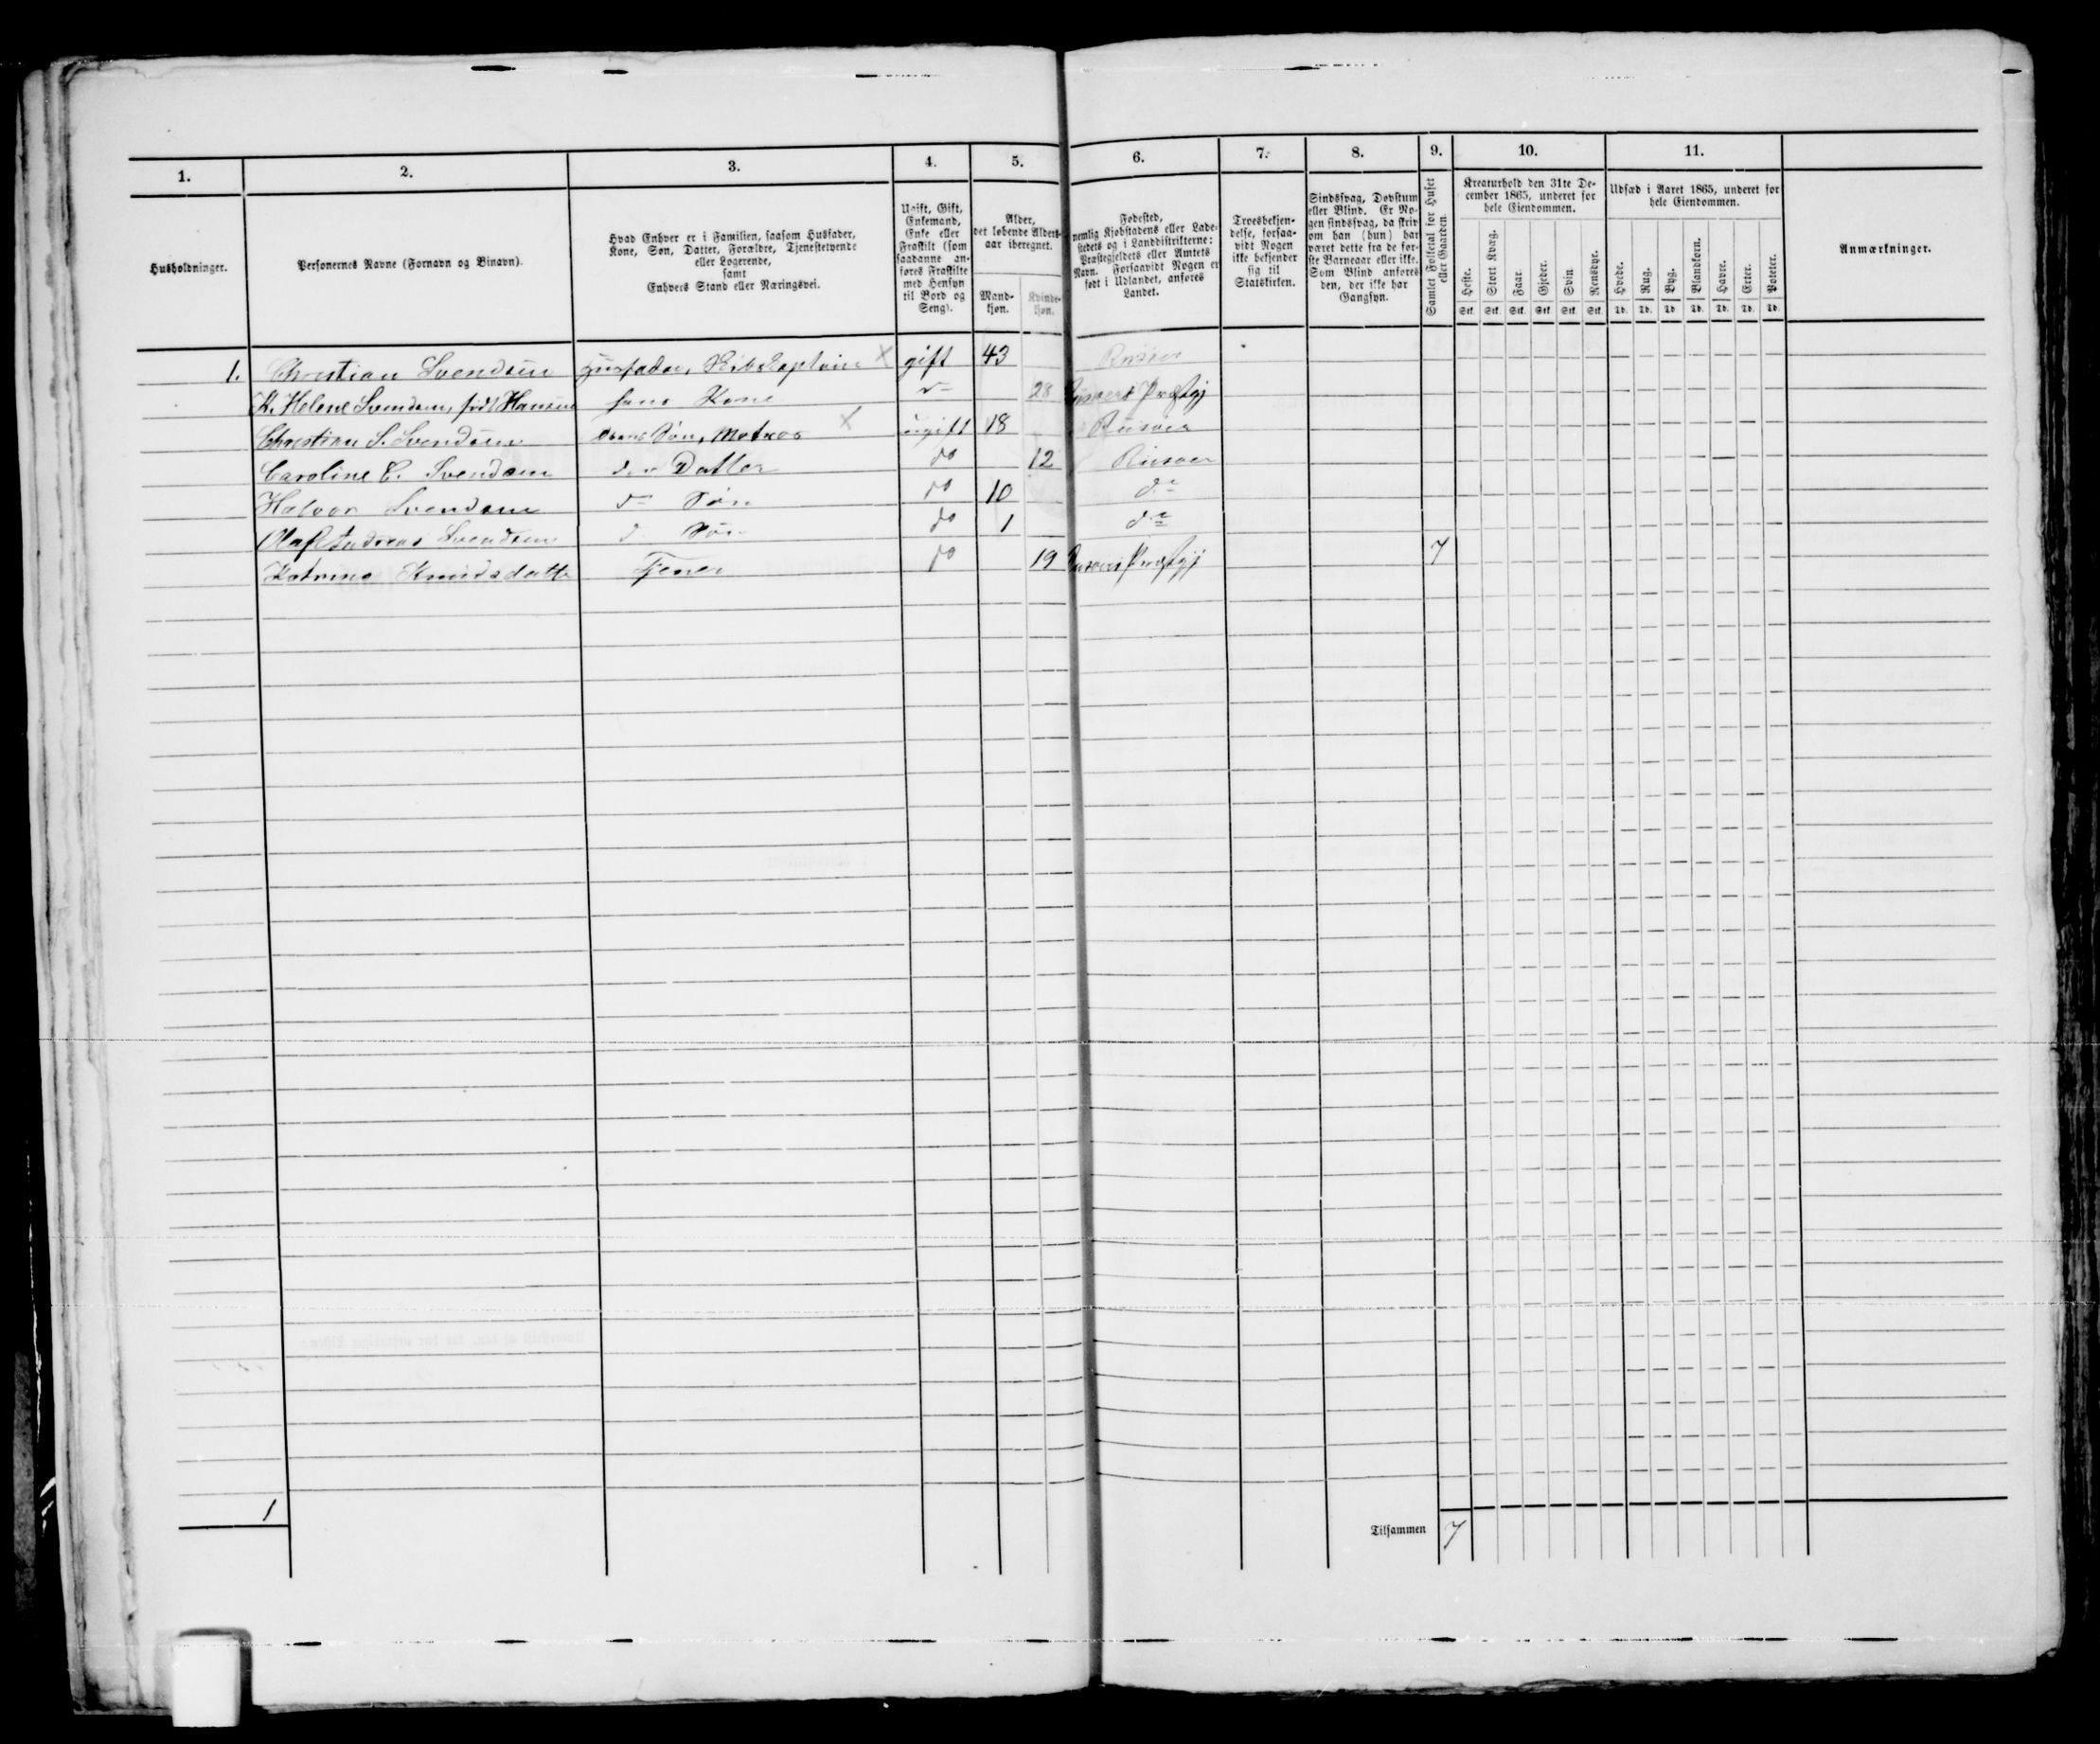 1. 2. 3. 4. 5. 6. 7. 8. 9. 10. 11.
Husholdninger.
Personernes Navne (Fornavn og Binavn).
Hvad Enhver er i Familien, saasom Husfader,
Kone, Søn, Datter, Forældre, Tjenestetyende
eller Logerende,
samt
Enhvers Stand eller Næringsvei.
Ugift, Gift,
Enkemand,
Enke eller
Fraskilt (som
saadanne an-
føres Fraskilte
med Hensyn
til Bord og
Seng).
Alder,
det løbende Alders-
aar iberegnet.
Mand-
kjøn.
Kvinde-
kjøn.
Fødested,
nemlig Kjøbstadens eller Lade-
stedets og i Landdistrikterne:
Præstegjeldets eller Amtets
Navn. Forsaavidt Nogen er
født i Udlandet, anføres
Landet.
Troesbekjen-
delse, forsaa-
vidt Nogen
ikke bekjender
sig til
Statskirken.
Sindssvag, Døvstum
eller Blind. Er No-
gen sindssvag, da skriv
om han (hun) har
været dette fra de før-
ste Barneaar eller ikke.
Som Blind anføres
den, der ikke har
Gangsyn.
Samlet Folketal for Huset
eller Gaarden.
Kreaturhold den 31te De-
cember 1865, underet for
hele Eiendommen.
Heste. Stort Kvæg. Faar. Gjeder. Svin. Rensdyr.
Stk. Stk. Stk. Stk. Stk. Stk.
Udsæd i Aaret 1865, underet for
hele Eiendommen.
Hvede. Rug. Byg. Blandkorn. Havre. Erter. Poteter.
Td. Td. Td. Td. Td. Td. Td.
Anmærkninger.
1. Christian Svendsen Husfader, Skibskaptein X gift 43 Riisøer
K. Helene Svendsen, født Hansen hans Kone 28 Riisøers Præstgj
Christian S. Svendsen Søn, Matros X ugift 18 Riisøer
Caroline C. Svendsen Datter do 12 Riisøer
Halvor Svendsen Søn do 10 do
Olaf Andreas Svendsen Søn do 1 do
Katrine Knudsdatter Tjener do 19 Riisøers Præstgj 7
1
Tilsammen 7